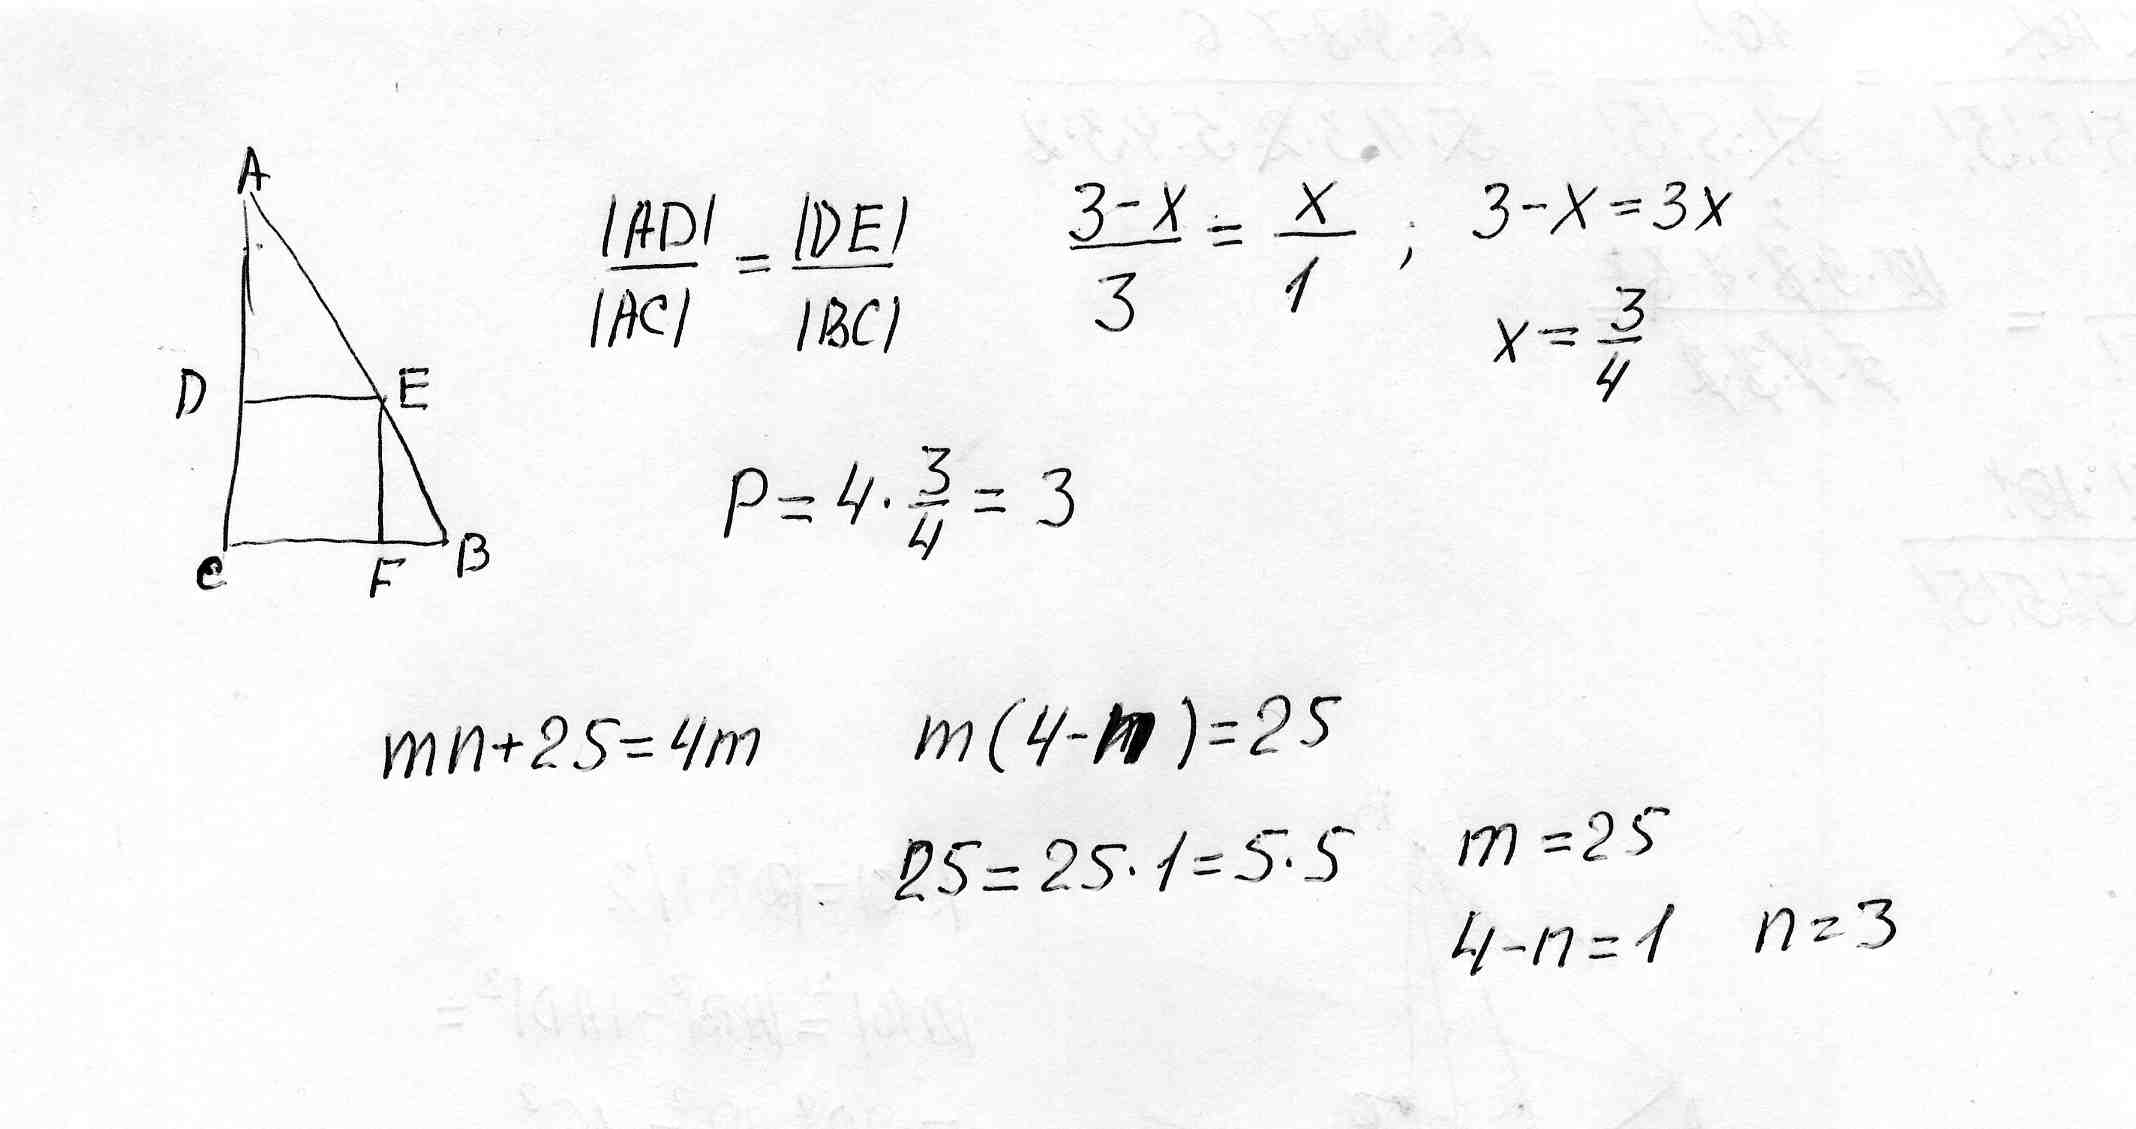 A
|AD| / |AC| = |DE| / |BC|   (3-x)/3 = x/1 ;   3-x=3x
x = 3/4
D E
P = 4 · 3/4 = 3
C F B
mn+25=4m   m(4-n)=25
25=25·1=5·5   m=25
4-n=1   n=3